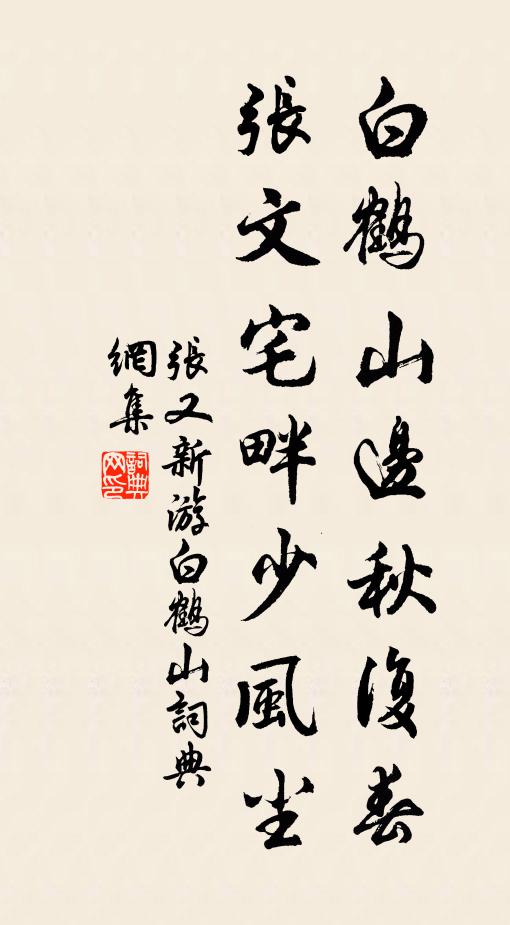 白鶴山邊秋復春
張文宅畔少風尘
張又新游白鶴山詞典
網集
詞典網印